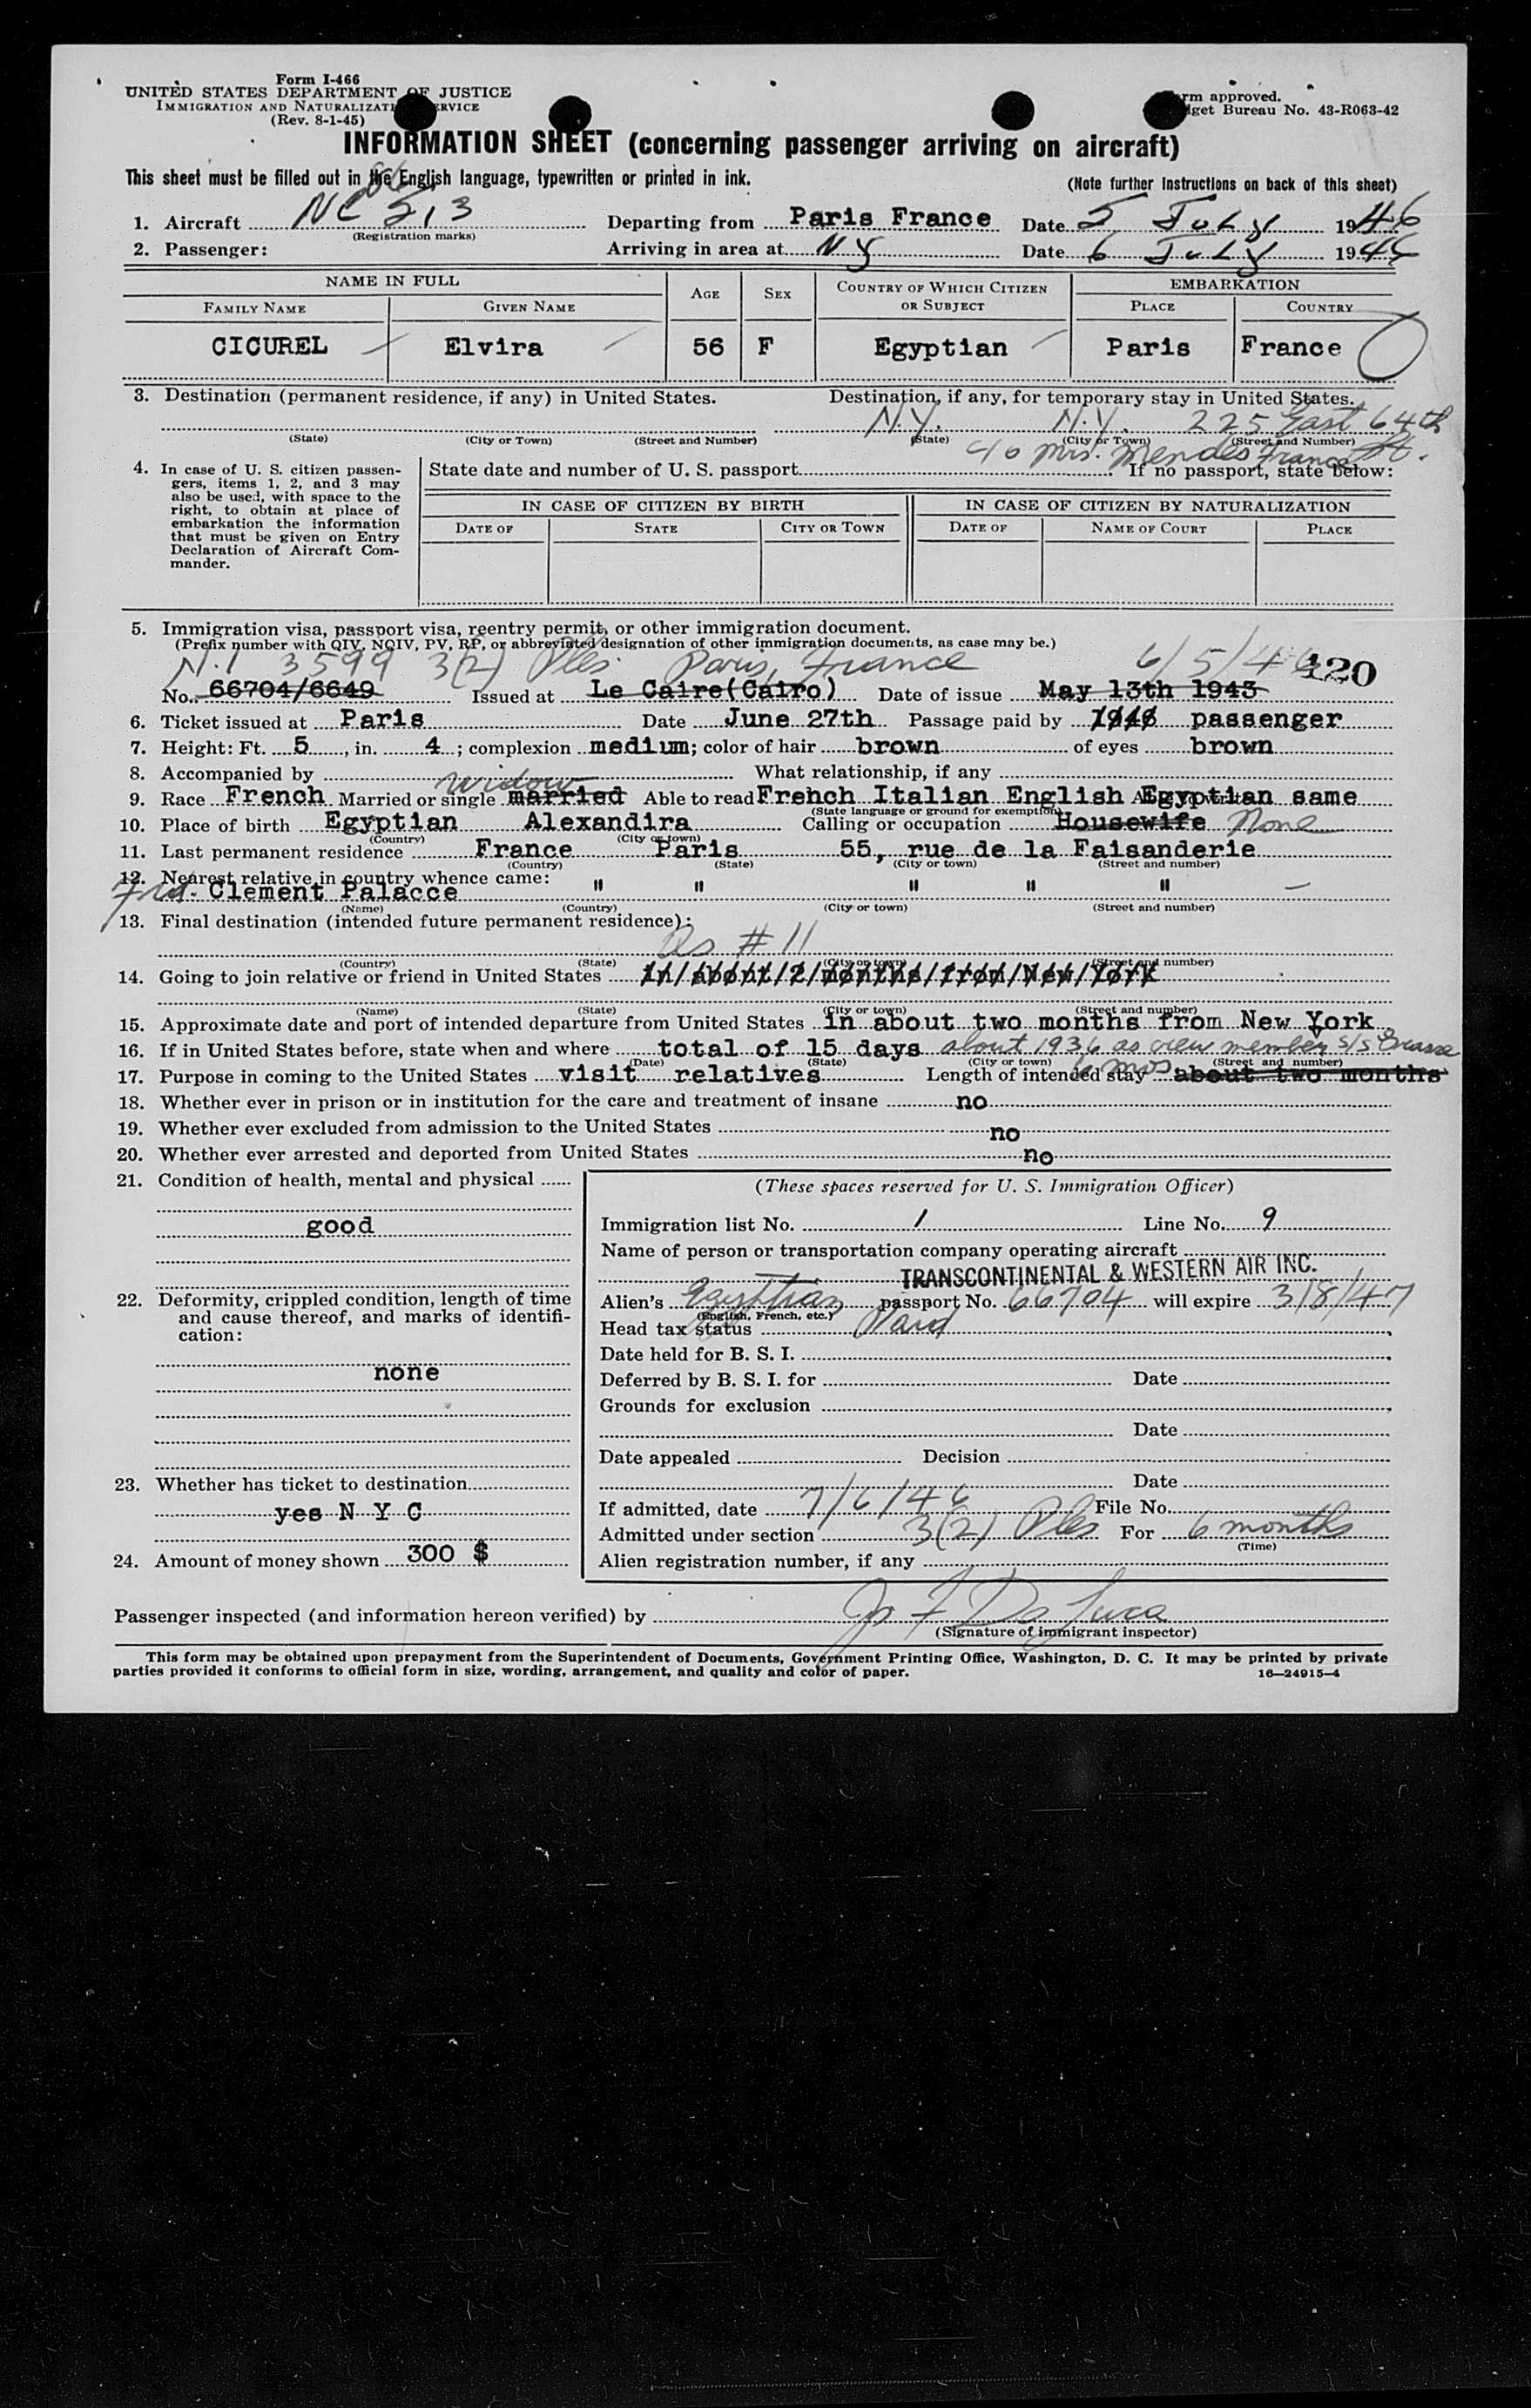 Form I-466
UNITED STATES DEPARTMENT OF JUSTICE
IMMIGRATION AND NATURALIZATI RVICE
(Rev. 8-1-45)
rm approved.
dget Bureau No. 43-R063-42
INFORMATION SHEET (concerning passenger arriving on aircraft)
This sheet must be filled out in the English language, typewritten or printed in ink.
(Note further instructions on back of this sheet)
1. Aircraft NC 513 Departing from Paris France Date 5 July 1946
(Registration marks)
2. Passenger: Arriving in area at N Y Date 6 July 1946
NAME IN FULL AGE SEX COUNTRY OF WHICH CITIZEN OR SUBJECT EMBARKATION
FAMILY NAME GIVEN NAME PLACE COUNTRY
CICUREL Elvira 56 F Egyptian Paris France
3. Destination (permanent residence, if any) in United States. Destination, if any, for temporary stay in United States.
N.Y. N.Y. 225 East 64th St.
(State) (City or Town) (Street and Number) (State) (City or Town) (Street and Number)
c/o Mrs. Mendes France
4. In case of U. S. citizen passengers, items 1, 2, and 3 may also be used, with space to the right, to obtain at place of embarkation the information that must be given on Entry Declaration of Aircraft Commander.
State date and number of U. S. passport If no passport, state below:
IN CASE OF CITIZEN BY BIRTH IN CASE OF CITIZEN BY NATURALIZATION
DATE OF STATE CITY OR TOWN DATE OF NAME OF COURT PLACE
5. Immigration visa, passport visa, reentry permit, or other immigration document.
(Prefix number with QIV, NQIV, PV, RP, or abbreviated designation of other immigration documents, as case may be.)
N.I 3599 3(2) Ples. Paris, France 6/5/46 120
No. 66704/6649 Issued at Le Caire(Cairo) Date of issue May 13th 1943
6. Ticket issued at Paris Date June 27th Passage paid by 1946 passenger
7. Height: Ft. 5, in. 4; complexion medium; color of hair brown of eyes brown
8. Accompanied by What relationship, if any
widow
9. Race French Married or single married Able to read French Italian English Egyptian same
(State language or ground for exemption)
10. Place of birth Egyptian Alexandira Calling or occupation Housewife None
(Country) (City or town)
11. Last permanent residence France Paris 55, rue de la Faisanderie
(Country) (State) (City or town) (Street and number)
12. Nearest relative in country whence came:
Frd. Clement Palacce " " " " " —
(Name) (Country) (City or town) (Street and number)
13. Final destination (intended future permanent residence):
as # 11
(Country) (State) (City or town) (Street and number)
14. Going to join relative or friend in United States in about 2 months from New York
(Name) (State) (City or town) (Street and number)
15. Approximate date and port of intended departure from United States in about two months from New York
16. If in United States before, state when and where total of 15 days about 1936 as crew member S/S
(Date) (State) (City or town) (Street and number)
17. Purpose in coming to the United States visit relatives Length of intended stay 6 mos about two months
18. Whether ever in prison or in institution for the care and treatment of insane no
19. Whether ever excluded from admission to the United States no
20. Whether ever arrested and deported from United States no
21. Condition of health, mental and physical
good
22. Deformity, crippled condition, length of time and cause thereof, and marks of identification:
none
23. Whether has ticket to destination
yes N Y C
24. Amount of money shown 300 $
(These spaces reserved for U. S. Immigration Officer)
Immigration list No. 1 Line No. 9
Name of person or transportation company operating aircraft
TRANSCONTINENTAL & WESTERN AIR INC.
Alien's Egyptian passport No. 66704 will expire 3/8/47
(English, French, etc.)
Head tax status Paid
Date held for B. S. I.
Deferred by B. S. I. for Date
Grounds for exclusion
Date
Date appealed Decision
Date
If admitted, date 7/6/46 File No.
Admitted under section 3(2) Ples For 6 months
(Time)
Alien registration number, if any
Passenger inspected (and information hereon verified) by
(Signature of immigrant inspector)
This form may be obtained upon prepayment from the Superintendent of Documents, Government Printing Office, Washington, D. C. It may be printed by private
parties provided it conforms to official form in size, wording, arrangement, and quality and color of paper. 16—24915-4